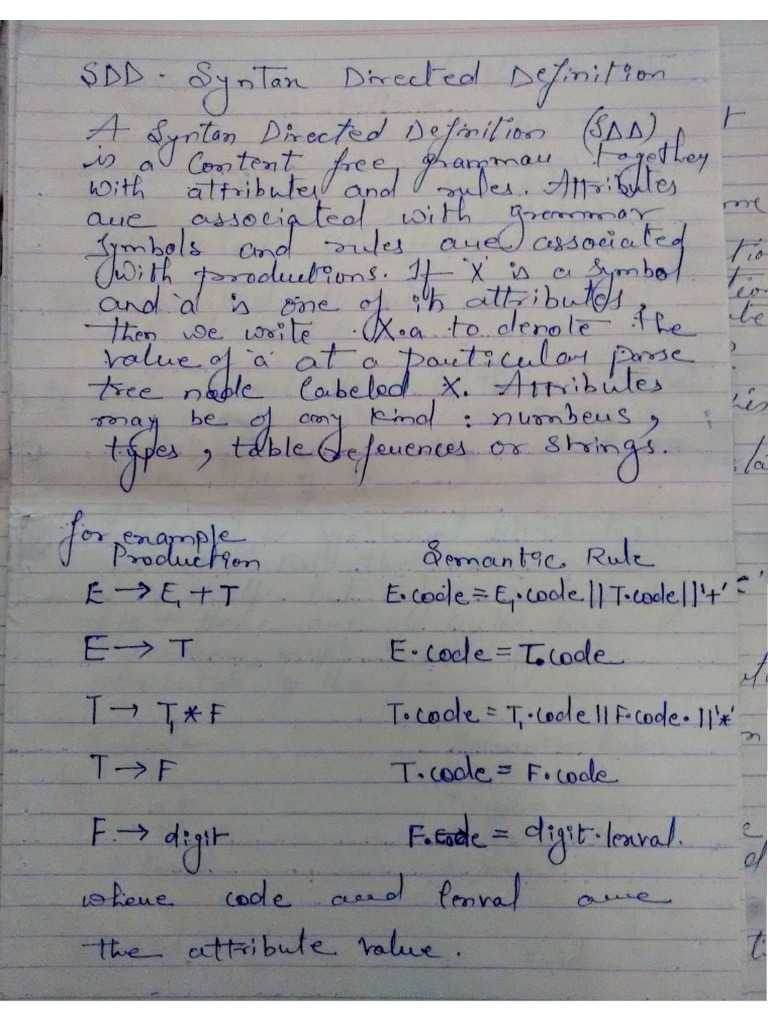 SDD - Syntax Directed Definition
A Syntax Directed Definition (SDD)
is a Context free grammar together
with attributes and rules. Attributes
are associated with grammar
symbols and rules are associated
with productions. If 'X' is a symbol
and 'a' is one of its attributes,
then we write X.a to denote the
value of 'a' at a particular parse
tree node labeled X. Attributes
may be of any kind : numbers,
types, table references or strings.
for example
Production Semantic Rule
E → E₁ + T E.code = E₁.code || T.code || '+'
E → T E.code = T.code
T → T₁ * F T.code = T₁.code || F.code. || '*'
T → F T.code = F.code
F. → digit F.code = digit.lexval.
where code and lexval are
the attribute value.